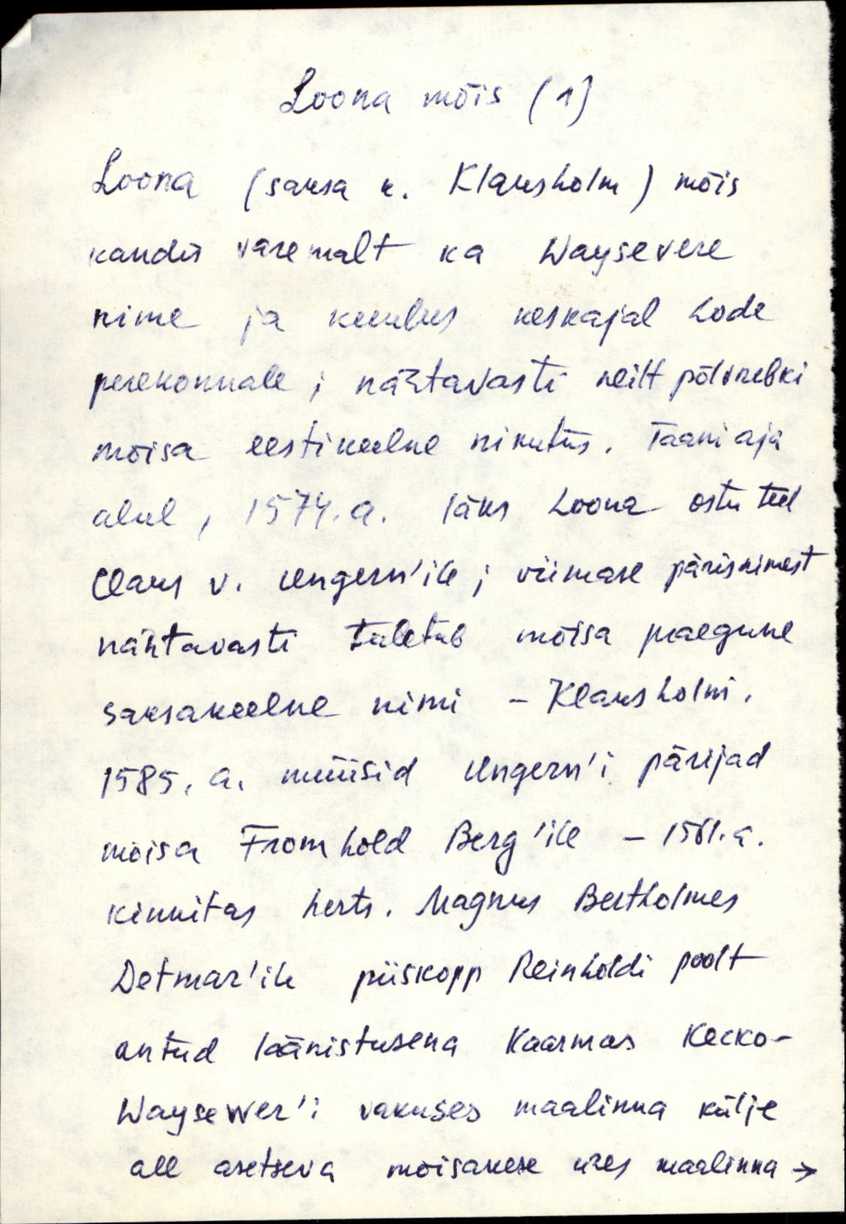 Loona mõis (1)
Loona (saksa k. Klausholm) mõis
kandis varemalt ka Waysevere
nime ja kuulus keskajal Lode
perekonnale; nähtavasti neilt põlvnebki
mõisa eestikeelne nimetus. Taani aja
alul, 1574. a. läks Loona ostu teel
Claus v. Ungern'ile; viimase pärisnimest
nähtavasti tuletub mõisa praegune
saksakeelne nimi – Klausholm.
1585. a. müüsid Ungern'i pärijad
mõisa Fromhold Berg'ile – 1561. a.
kinnitas herts. Magnus Bertholmes
Detmar'ile piiskopp Reinholdi poolt
antud läänistusena Kaarmas Kecko-
Waysewer'i vakuses maalinna külje
all asetseva mõisakese ühes maalinna →